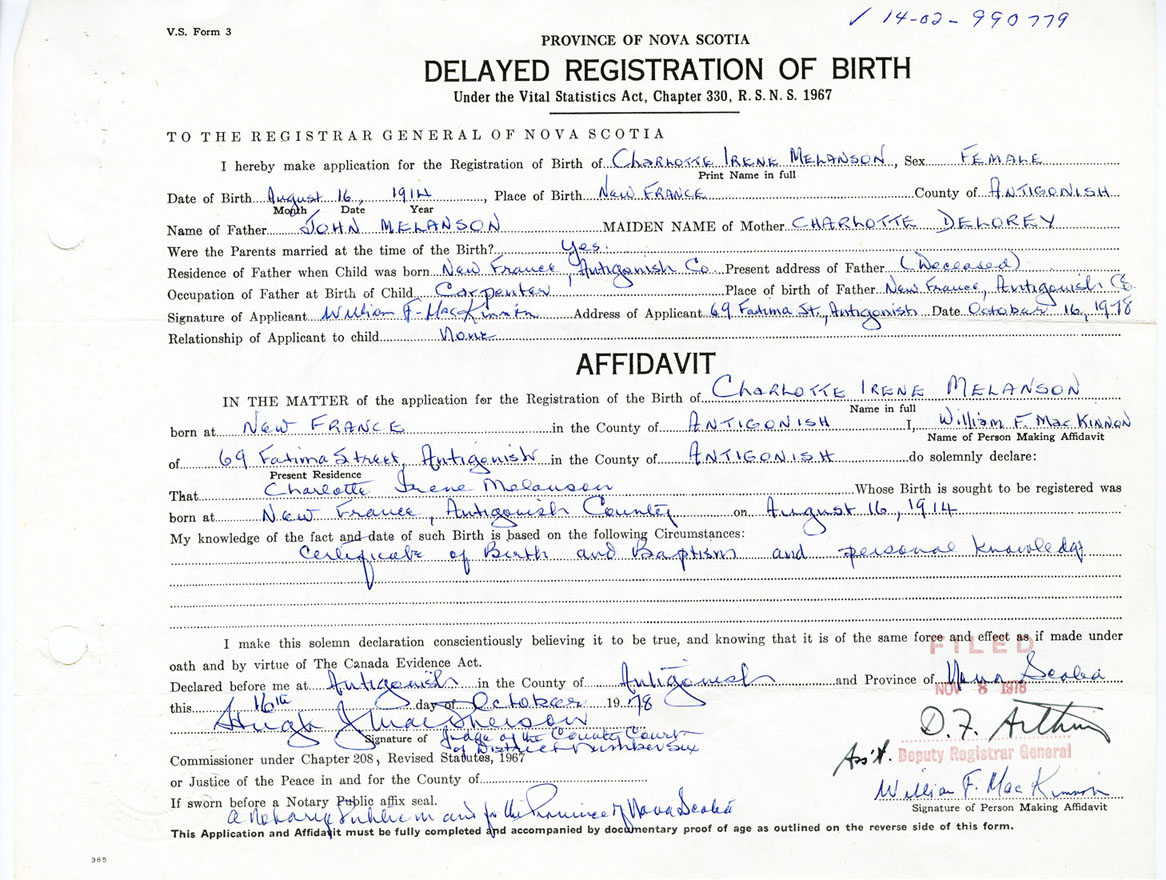 ✓ 14-02-990779
V.S. Form 3
PROVINCE OF NOVA SCOTIA
DELAYED REGISTRATION OF BIRTH
Under the Vital Statistics Act, Chapter 330, R. S. N. S. 1967
TO THE REGISTRAR GENERAL OF NOVA SCOTIA
I hereby make application for the Registration of Birth of Charlotte Irene Melanson, Sex Female
Print Name in full
Date of Birth August 16, 1914, Place of Birth New France County of Antigonish
Month Date Year
Name of Father John Melanson MAIDEN NAME of Mother Charlotte Delorey
Were the Parents married at the time of the Birth? Yes.
Residence of Father when Child was born New France, Antigonish Co Present address of Father (Deceased)
Occupation of Father at Birth of Child Carpenter Place of birth of Father New France, Antigonish Co.
Signature of Applicant William F. MacKinnon Address of Applicant 69 Fatima St., Antigonish Date October 16, 1978
Relationship of Applicant to child None
AFFIDAVIT
IN THE MATTER of the application for the Registration of the Birth of Charlotte Irene Melanson
Name in full
born at New France in the County of Antigonish I, William F. MacKinnon
Name of Person Making Affidavit
of 69 Fatima Street, Antigonish in the County of Antigonish do solemnly declare:
Present Residence
That Charlotte Irene Melanson Whose Birth is sought to be registered was
born at New France, Antigonish County on August 16, 1914
My knowledge of the fact and date of such Birth is based on the following Circumstances:
Certificate of Birth and Baptism and personal knowledge
I make this solemn declaration conscientiously believing it to be true, and knowing that it is of the same force and effect as if made under
FILED
oath and by virtue of The Canada Evidence Act.
Declared before me at Antigonish in the County of Antigonish and Province of Nova Scotia
NOV 8 1978
this 16th day of October 1978
Hugh J. MacPherson
D. F. Arthur
Signature of Judge of the County Court
of District Number Six
Ass't. Deputy Registrar General
Commissioner under Chapter 208, Revised Statutes, 1967
or Justice of the Peace in and for the County of
William F. MacKinnon
If sworn before a Notary Public affix seal.
Signature of Person Making Affidavit
a Notary Public in and for the Province of Nova Scotia
This Application and Affidavit must be fully completed and accompanied by documentary proof of age as outlined on the reverse side of this form.
385